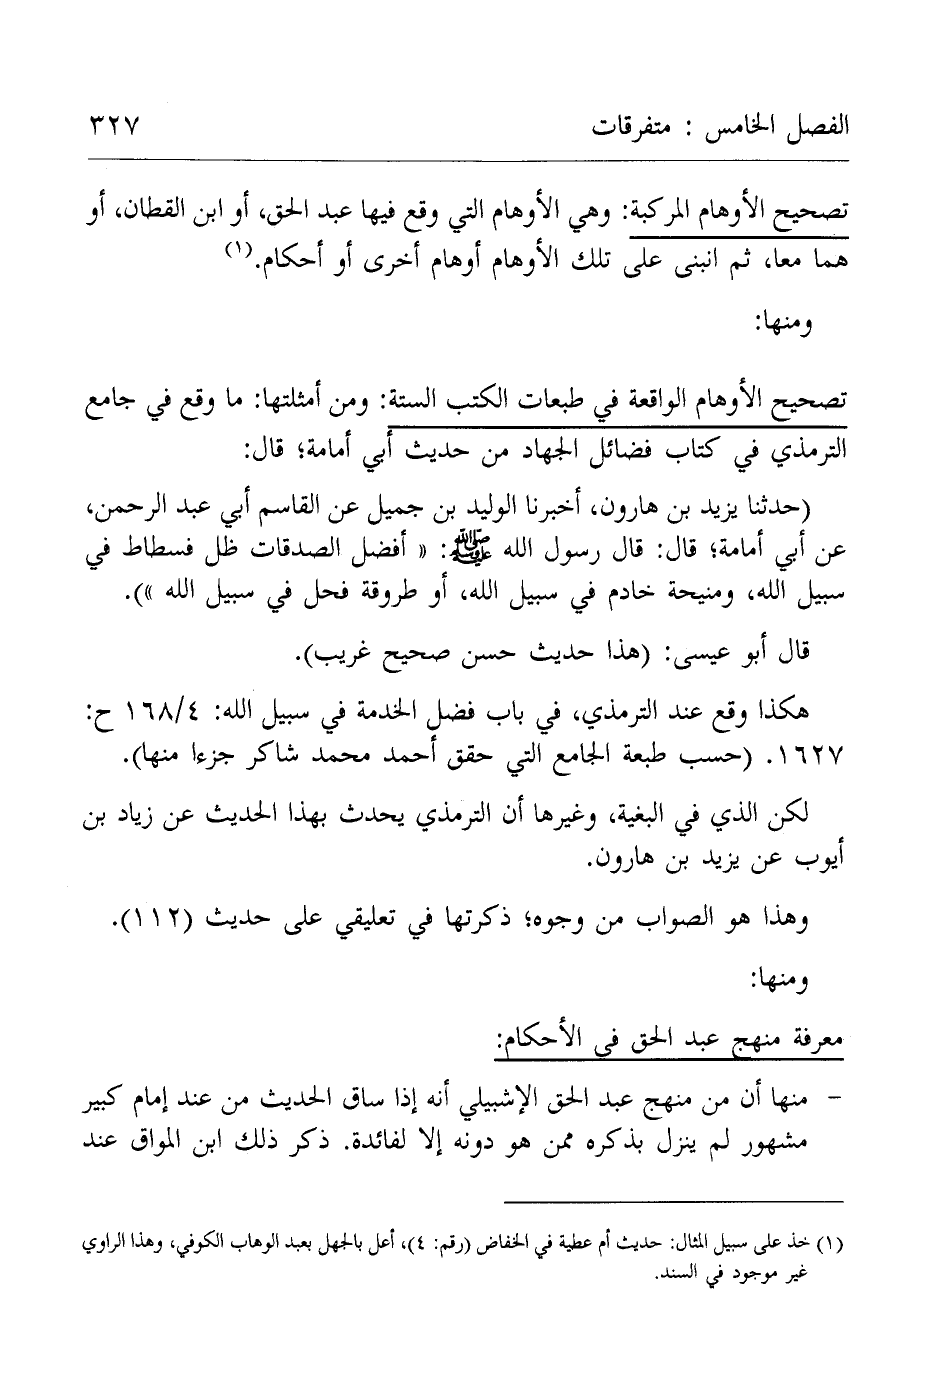 الفصل الخامس : متفرقات ٣٢٧
تصحيح الأوهام المركبة: وهي الأوهام التي وقع فيها عبد الحق، أو ابن القطان، أو
هما معا، ثم انبنى على تلك الأوهام أوهام أخرى أو أحكام.(١)
ومنها:
تصحيح الأوهام الواقعة في طبعات الكتب الستة: ومن أمثلتها: ما وقع في جامع
الترمذي في كتاب فضائل الجهاد من حديث أبي أمامة؛ قال:
(حدثنا يزيد بن هارون، أخبرنا الوليد بن جميل عن القاسم أبي عبد الرحمن،
عن أبي أمامة؛ قال: قال رسول الله ﷺ: « أفضل الصدقات ظل فسطاط في
سبيل الله، ومنيحة خادم في سبيل الله، أو طروقة فحل في سبيل الله »).
قال أبو عيسى: (هذا حديث حسن صحيح غريب).
هكذا وقع عند الترمذي، في باب فضل الخدمة في سبيل الله: ١٦٨/٤ ح:
١٦٢٧. (حسب طبعة الجامع التي حقق أحمد محمد شاكر جزءا منها).
لكن الذي في البغية، وغيرها أن الترمذي يحدث بهذا الحديث عن زياد بن
أيوب عن يزيد بن هارون.
وهذا هو الصواب من وجوه؛ ذكرتها في تعليقي على حديث (١١٢).
ومنها:
معرفة منهج عبد الحق في الأحكام:
- منها أن من منهج عبد الحق الإشبيلي أنه إذا ساق الحديث من عند إمام كبير
مشهور لم ينزل بذكره ممن هو دونه إلا لفائدة. ذكر ذلك ابن المواق عند
(١) خذ على سبيل المثال: حديث أم عطية في الخفاض (رقم: ٤)، أعل بالجهل بعبد الوهاب الكوفي، وهذا الراوي
غير موجود في السند.